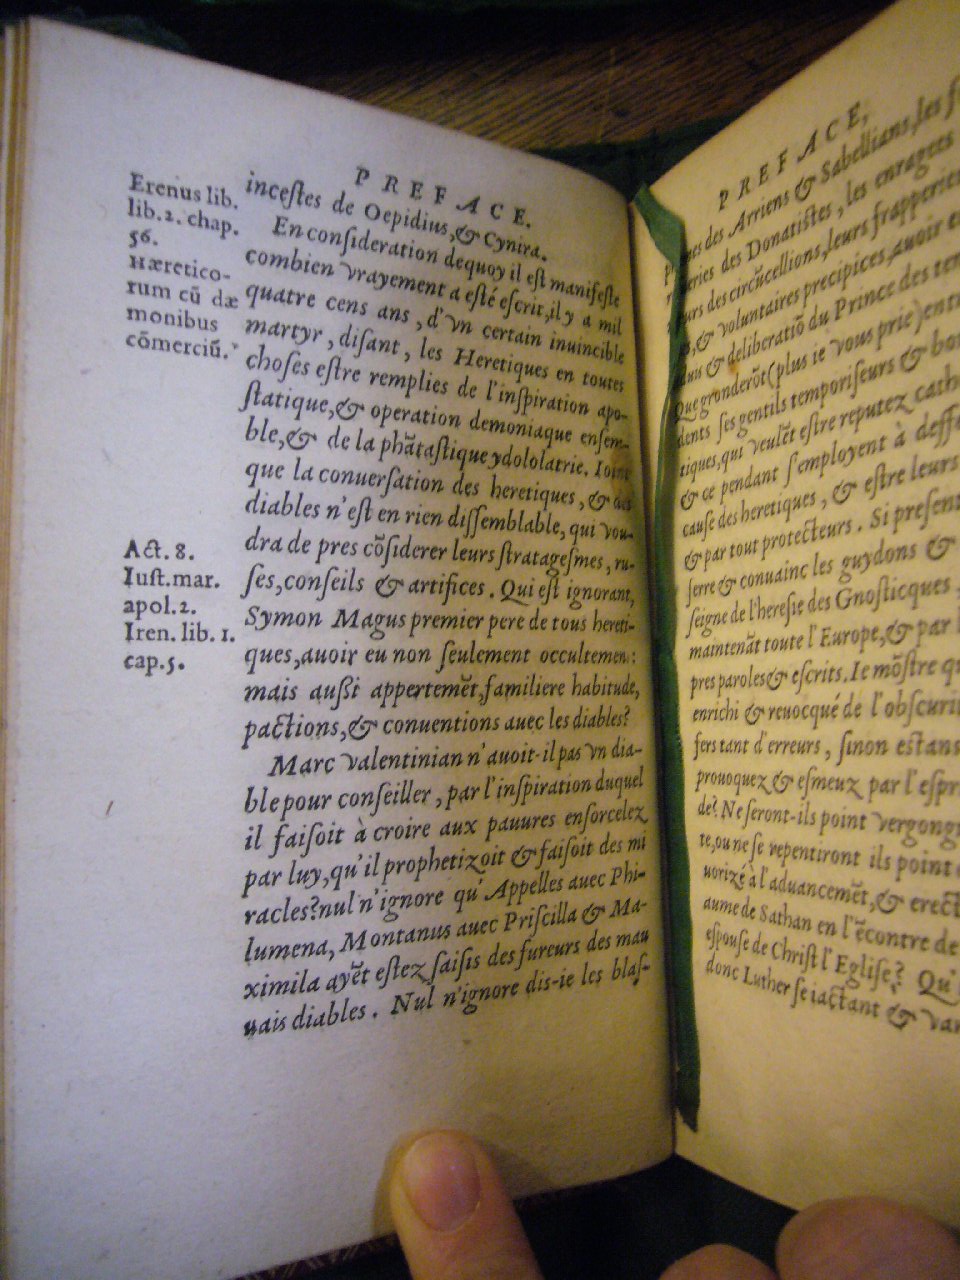 PREFACE.
incestes de Oepidius,& Cynira.
En consideration dequoy il est manifeste
combien vrayement a esté escrit,il y a mil
quatre cens ans, d'vn certain inuincible
martyr, disant, les Heretiques en toutes
choses estre remplies de l'inspiration apo-
statique,& operation demoniaque ensem-
ble,& de la phãtastique ydololatrie. Ioint
que la conuersation des heretiques, & des
diables n'est en rien dissemblable, qui vou-
dra de pres cõsiderer leurs stratagesmes, ru-
ses,conseils & artifices. Qui est ignorant,
Symon Magus premier pere de tous hereti-
ques,auoir eu non seulement occultement:
mais aussi appertemẽt,familiere habitude,
pactions,& conuentions auec les diables?
Marc valentinian n'auoit-il pas vn dia-
ble pour conseiller, par l'inspiration duquel
il faisoit à croire aux pauures ensorcelez
par luy,qu'il prophetizoit & faisoit des mi
racles?nul n'ignore qu'Appelles auec Phi-
lumena, Montanus auec Priscilla & Ma-
ximila ayẽt estez saisis des fureurs des mau
uais diables. Nul n'ignore dis-ie les blas-
Erenius lib.
lib.2. chap.
56.
Hæretico-
rum cũ dæ
monibus
cõmerciũ.
Act. 8.
Iust.mar.
apol.2.
Iren. lib. 1.
cap.5.
PREFACE,
des Arriens & Sabellians,les
des Donatistes, les enragees
des circũcellions,leurs frapperies
& voluntaires precipices,auoir
& deliberatiõ du Prince des
Que gronderõt(plus ie vous prie)
dents ses gentils temporiseurs &
tiques,qui veulẽt estre reputez
& ce pendant s'employent à
cause des heretiques, & estre leurs
& par tout protecteurs. Si
serre & conuainc les guydons &
seigne de l'heresie des Gnosticques,
maintenãt toute l'Europe,& par
pres paroles & escrits. Ie mõstre
enrichi & reuocqué de
fers tant d'erreurs, sinon
prouoquez & esmeuz par
de?. Ne seront-ils point
te,ou ne se repentiront ils point
uorizé à l'aduancemẽt,&
aume de Sathan en l'ẽcontre de
espouse de Christ l'Eglise?
donc Luther se iactant &